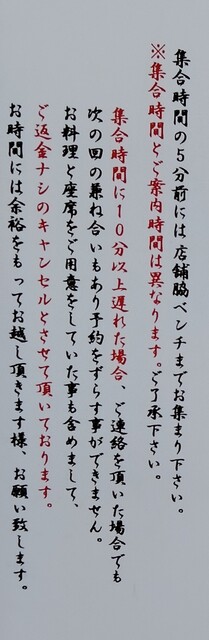 集合時間の5分前には店舗脇ベンチまでお集まり下さい。
※集合時間とご案内時間は異なります。ご了承下さい。
集合時間に10分以上遅れた場合、ご連絡を頂いた場合でも
次の回の兼ね合いもあり予約をずらす事ができません。
お料理と座席をご用意をしていた事も含めまして、
ご返金ナシのキャンセルとさせて頂いております。
お時間には余裕をもってお越し頂きます様、お願い致します。